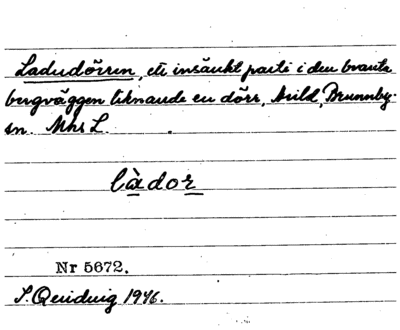 Ladudörren, ett insänkt parti i den branta
bergväggen liknande en dörr, Arild, Brunnby
sn. Mhs L.
làdor
Nr 5672.
S. Qvidvig 1946.